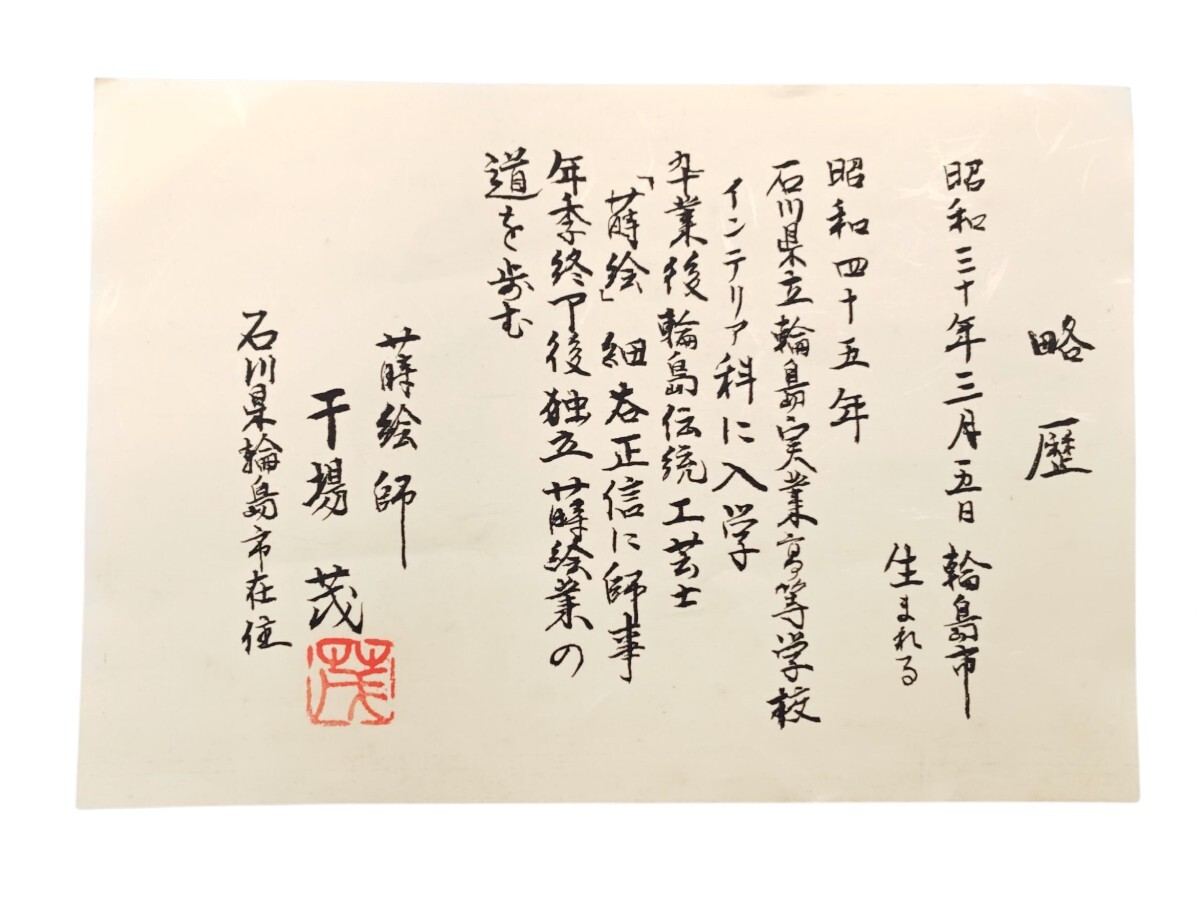 略歴
昭和三十年三月五日 輪島市
生まれる
昭和四十五年
石川県立輪島実業高等学校
インテリア科に入学
卒業後輪島伝統工芸士
「蒔絵」細谷正信に師事
年季終了後独立蒔絵業の
道を歩む
蒔絵師
干場 茂
茂
石川県輪島市在住